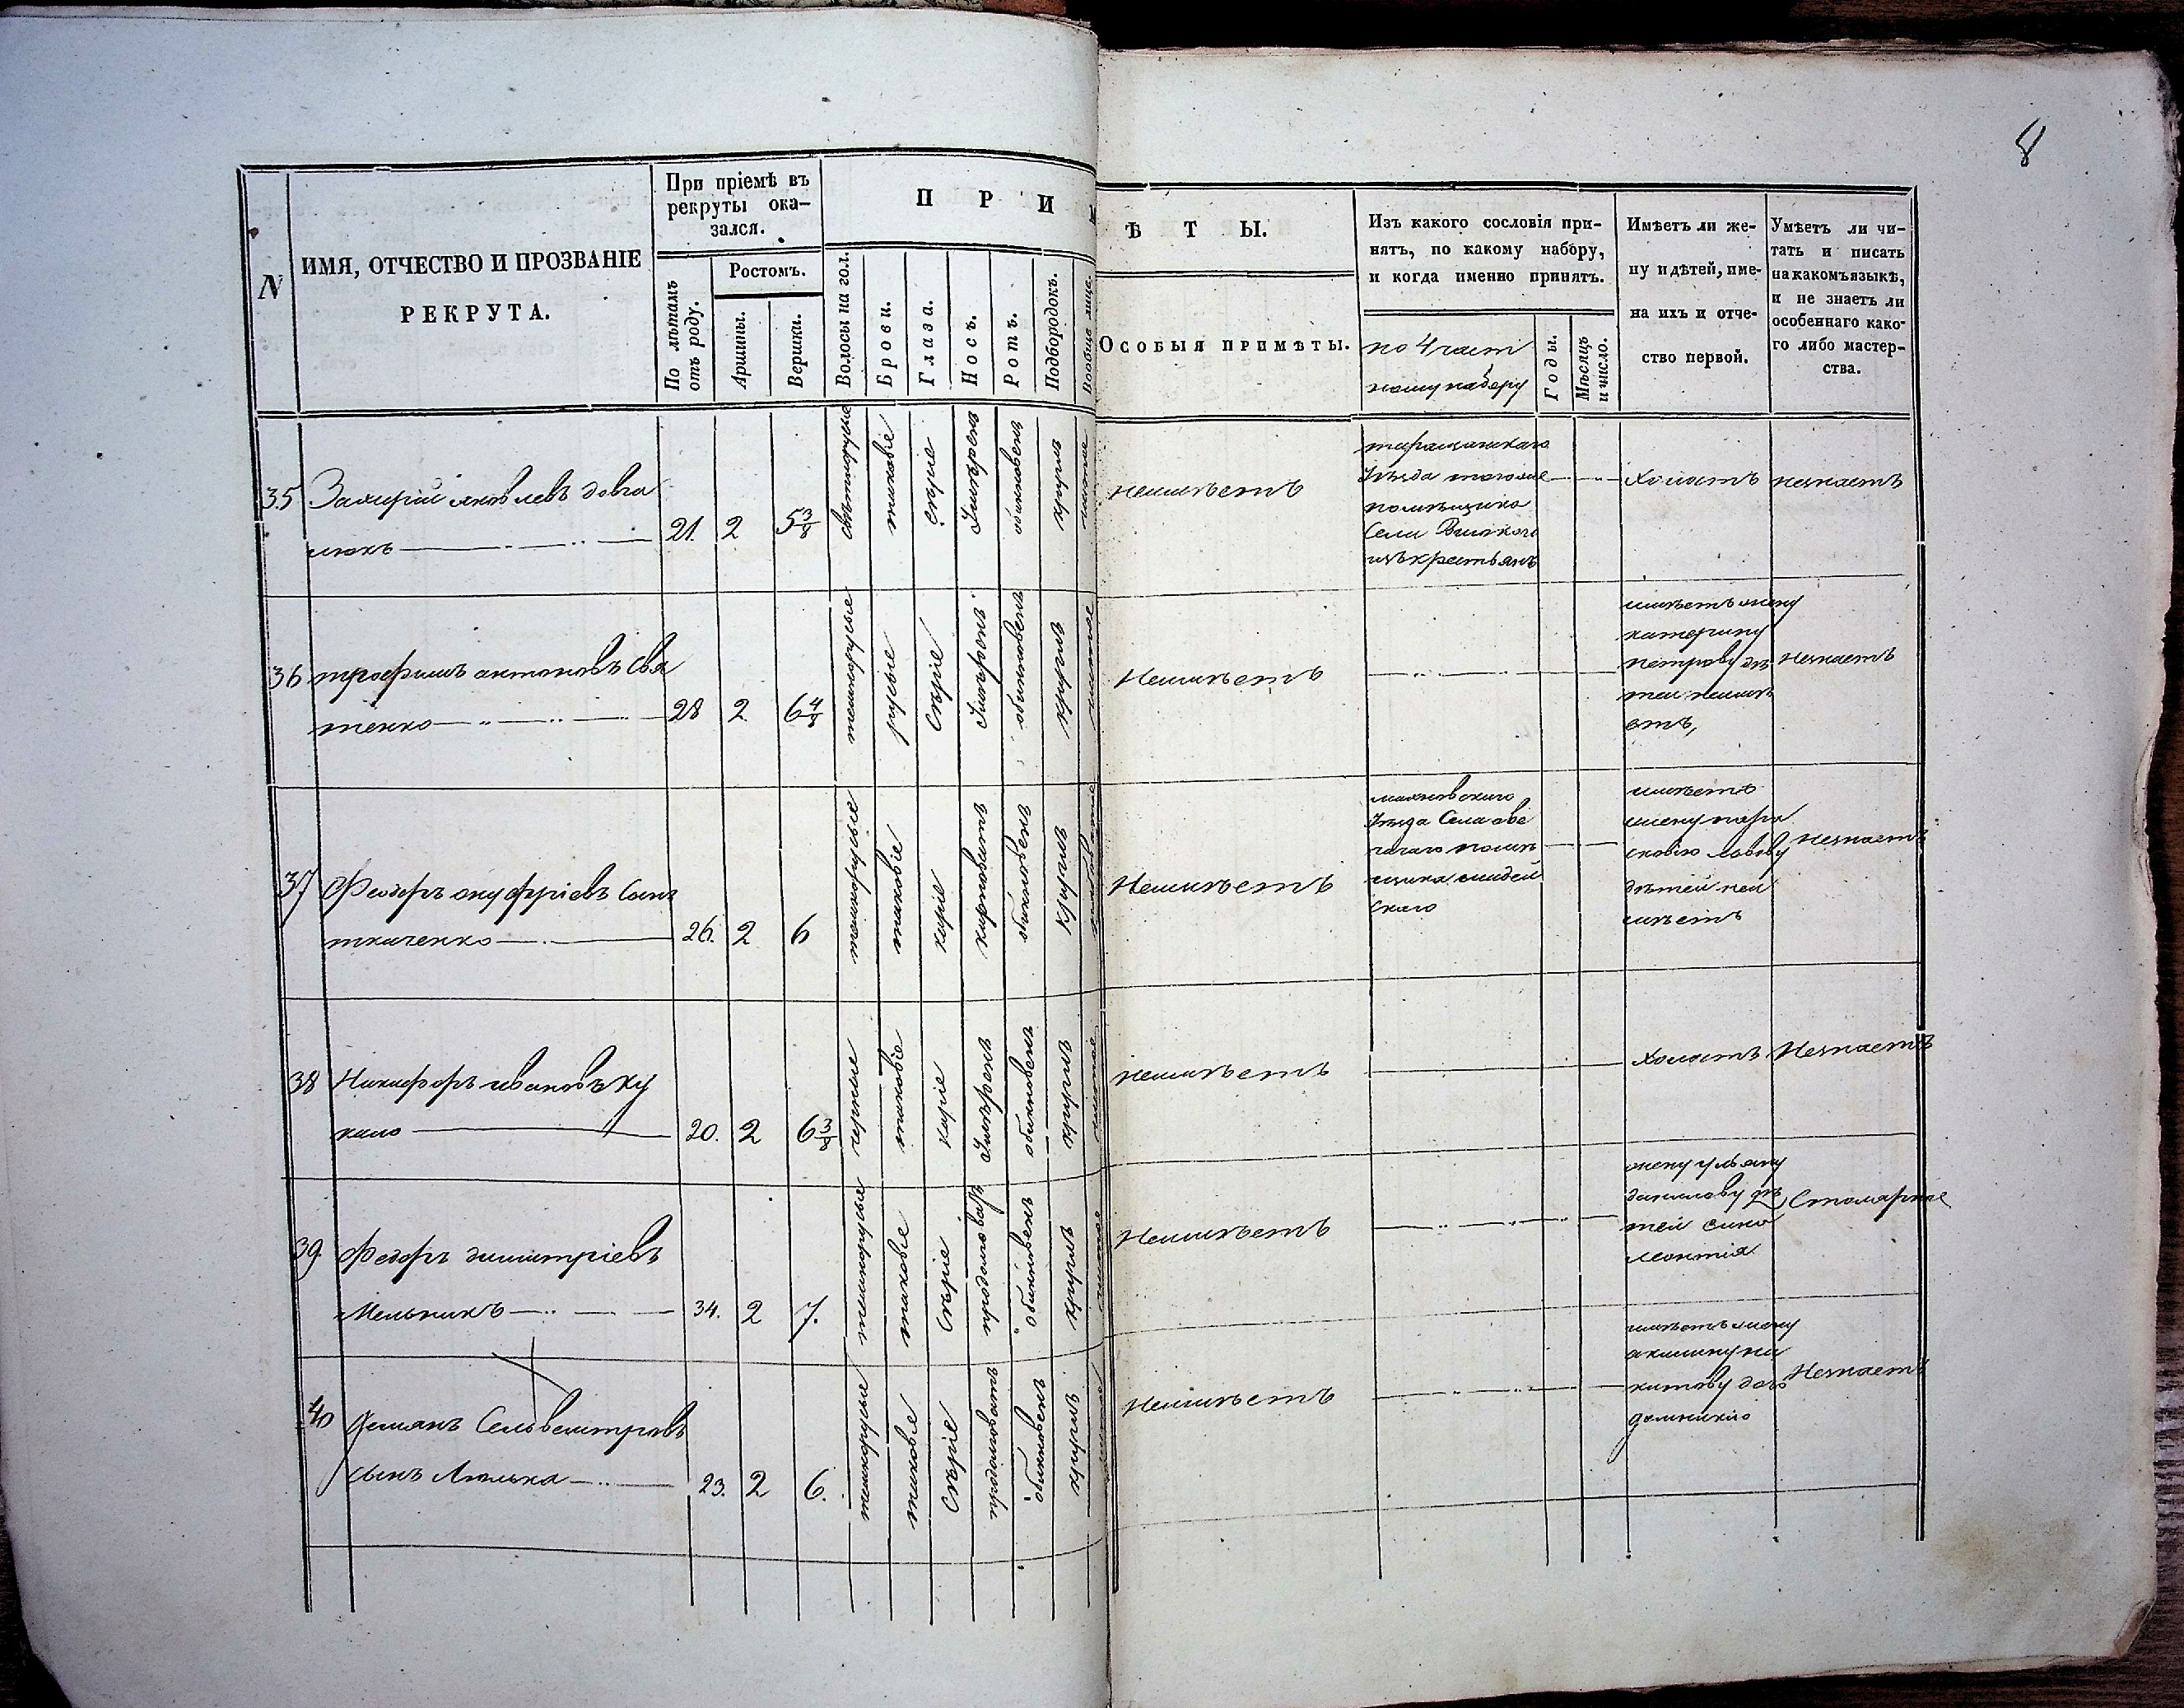 8
N
ИМЯ, ОТЧЕСТВО И ПРОЗВАНІЕ
РЕКРУТА.
При пріемѣ въ
рекруты ока-
зался.
По лѣтамъ
отъ роду.
Ростомъ.
Аршины.
Вершки.
П Р И М
Ѣ Т Ы.
Волосы на гол.
Брови.
Глаза.
Носъ.
Ротъ.
Подбородокъ.
Вообще лице.
ОСОБЫЯ ПРИМѢТЫ.
Изъ какого сословія при-
нятъ, по какому набору,
и когда именно принятъ.
по 4 част
ному набору
Годы.
Мѣсяцъ
и число.
Имѣетъ ли же-
ну и дѣтей, име-
на ихъ и отче-
ство первой.
Умѣетъ ли чи-
тать и писать
на какомъ языкѣ,
и не знаетъ ли
особеннаго како-
го либо мастер-
ства.
35
Захарій яковлевъ довга
люкъ
21. 2 5 3/8
свѣтлорусые
таковіе
сѣріе
Умѣренъ
обикновенъ
круглъ
чистое
неимѣетъ
таращанскаго
Уѣзда
помѣщика
Села
изъ крестьянъ
Холостъ
незнаетъ
36
трофимъ антоновъ Свя
тенко
28 2 6 4/8
темнорусые
русые
Сѣріе
Умѣренъ
обикновенъ
круглъ
чистое
Неимѣетъ
имѣетъ жену
катерину
петрову дѣ
тей неимѣ
етъ,
Незнаетъ
37
Феодоръ онуфріевъ Сынъ
ткаченко
26. 2 6
темнорусые
таковіе
каріе
курноватъ
обикновенъ
круглъ
Неимѣетъ
Уѣзда Села
помѣ
щика
скаго
имѣетъ
жену пара
сковію
дѣтей неи
имѣетъ
Незнаетъ
38
Никифоръ ивановъ ку
кало
20. 2 6 3/8
черные
таковіе
каріе
Умѣренъ
обикновенъ
круглъ
чистое
неимѣетъ
Холостъ
Незнаетъ
39
Федоръ димитріевъ
Мельникъ
34. 2 7.
темнорусые
таковіе
Сѣріе
продолговатъ
обикновенъ
круглъ
чистое
Неимѣетъ
жену ульяну
данилову дѣ
тей сина
леонтія
Столярное
40
Демянъ Селвестровъ
сынъ Люлька
23. 2 6.
темнорусые
таковіе
Сѣріе
продолговатъ
обикновенъ
круглъ
Неимѣетъ
имѣетъ жену
акилину ни
китову доч
домникію
Незнаетъ